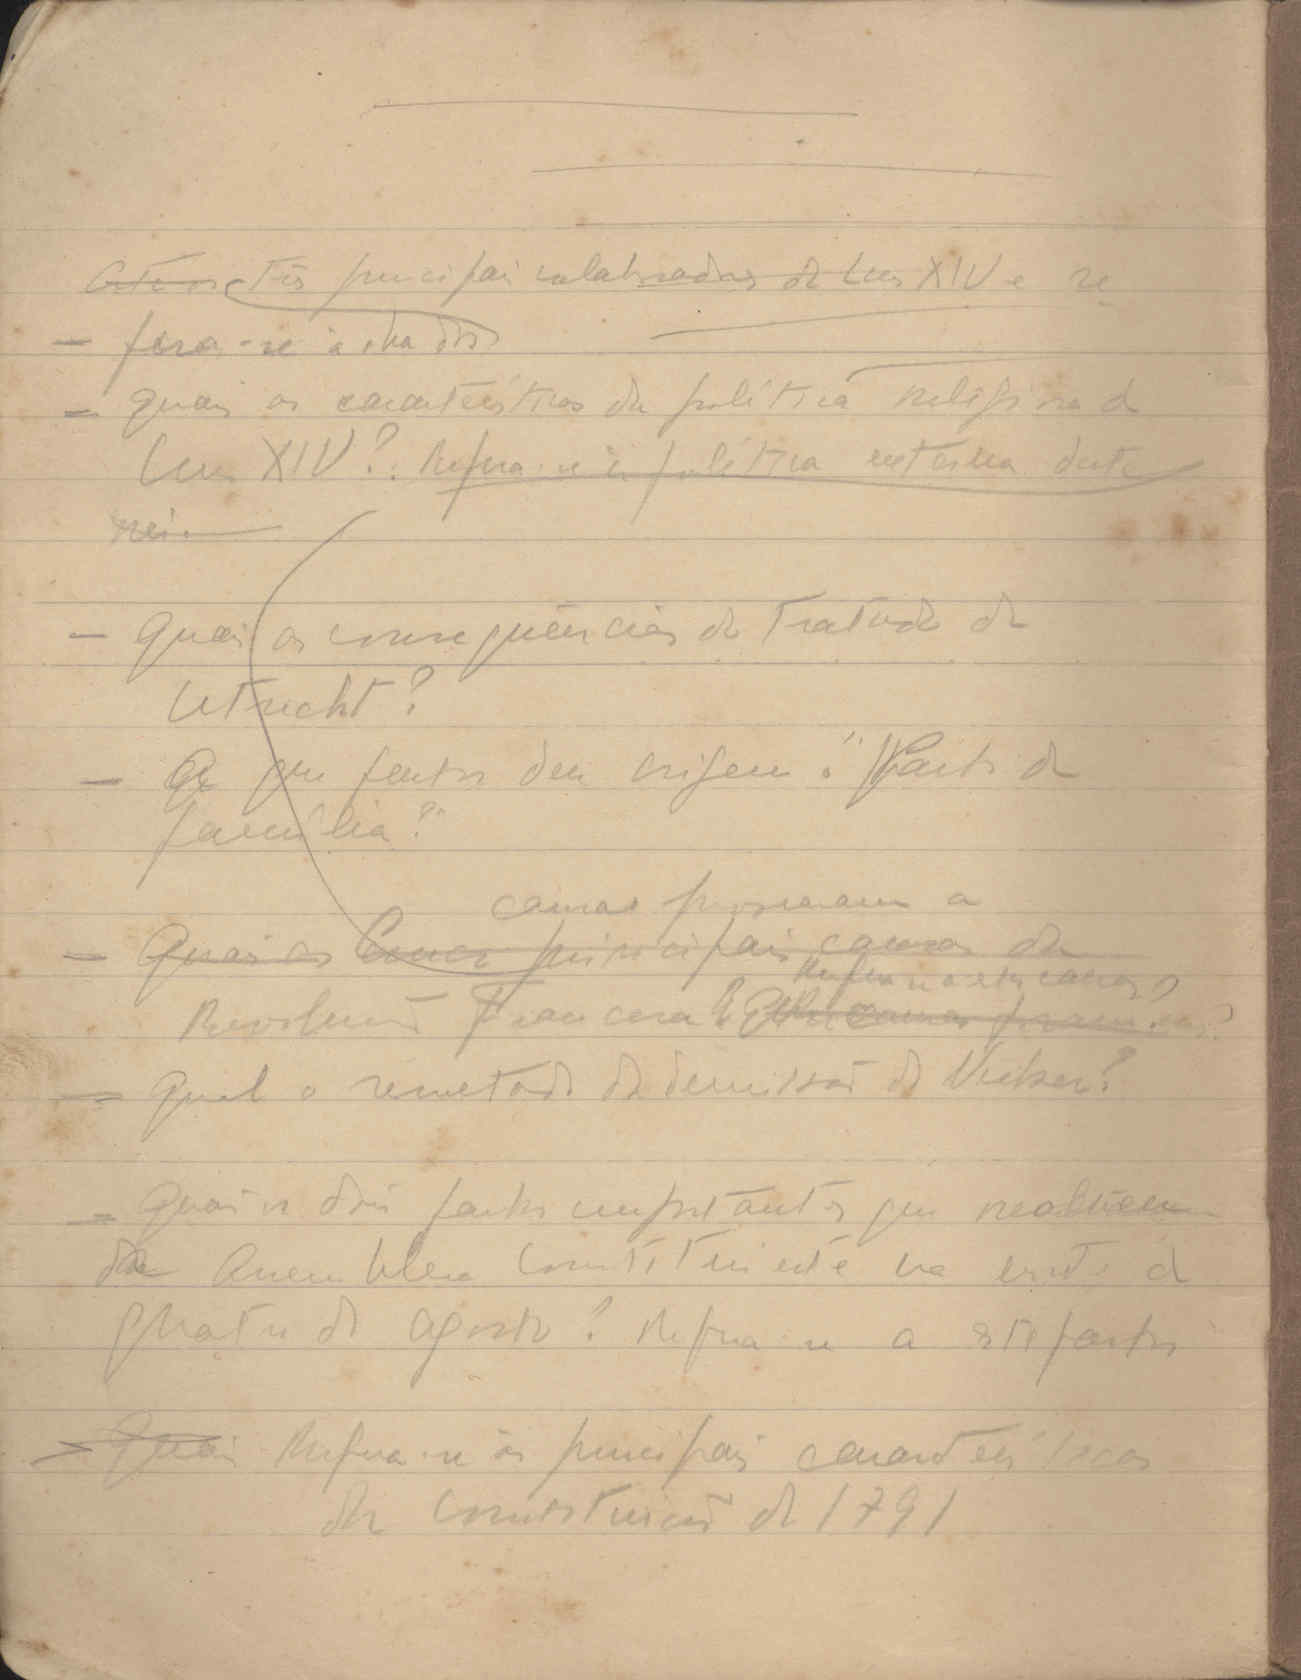 Cite os três principais colaboradores de Luis XIV e re
- fira-se à obra dos
- quais as características da política religiosa de
Luis XIV? Refira-se à política externa deste
rei.
- Quais as consequências do Tratado de
Utrecht?
- A que factos deu origem o "Pacto de
família?"
causas provocaram a
- Quais as principais causas da
Revolução Francesa? Refira-se a estas causas?
- Qual o resultado da demissão de Necker?
- Quais os dois factos importantes que realizaram
da Assembleia Constituinte na noite de
quatro de agosto? Refira-se a estes factos
- Quais Refira-se às principais características
da Constituição de 1791